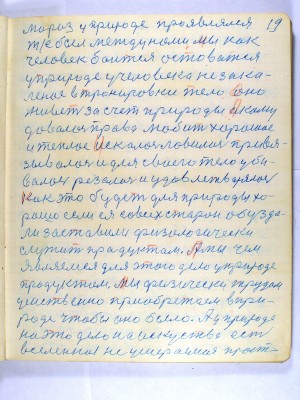 19
мороз у природе проявлялся
между ними мы как
человек боится остоватся
у природе у человека не зака-
леное в тронировки тело Оно
живет за счет природы А кому
давалася права любить хорошое
и теплое Искалося ловилося
и для своего тело уби-
валося резалося и удовлетвулялося
как это будет для природы хо-
рашо если ея со всех старон обузда-
ли заставили физологически
служить прадуктам. А мы чем
являемся для этого дело у природе
продуктом. Мы физически трудом
приобретаем в при-
роде чтобы оно было. А у природе
на это дело на искуства ест
вселеная не умераимая прост-